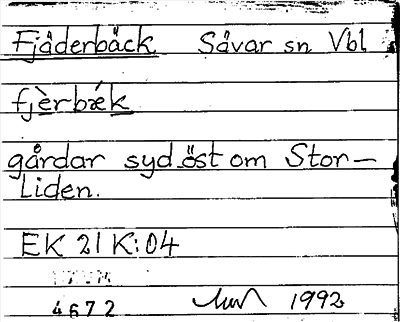 Fjäderbäck Sävar sn Vbl
fjèrbǽk
gårdar syd öst om Stor-
Liden.
EK 21 K:04
4672 1992